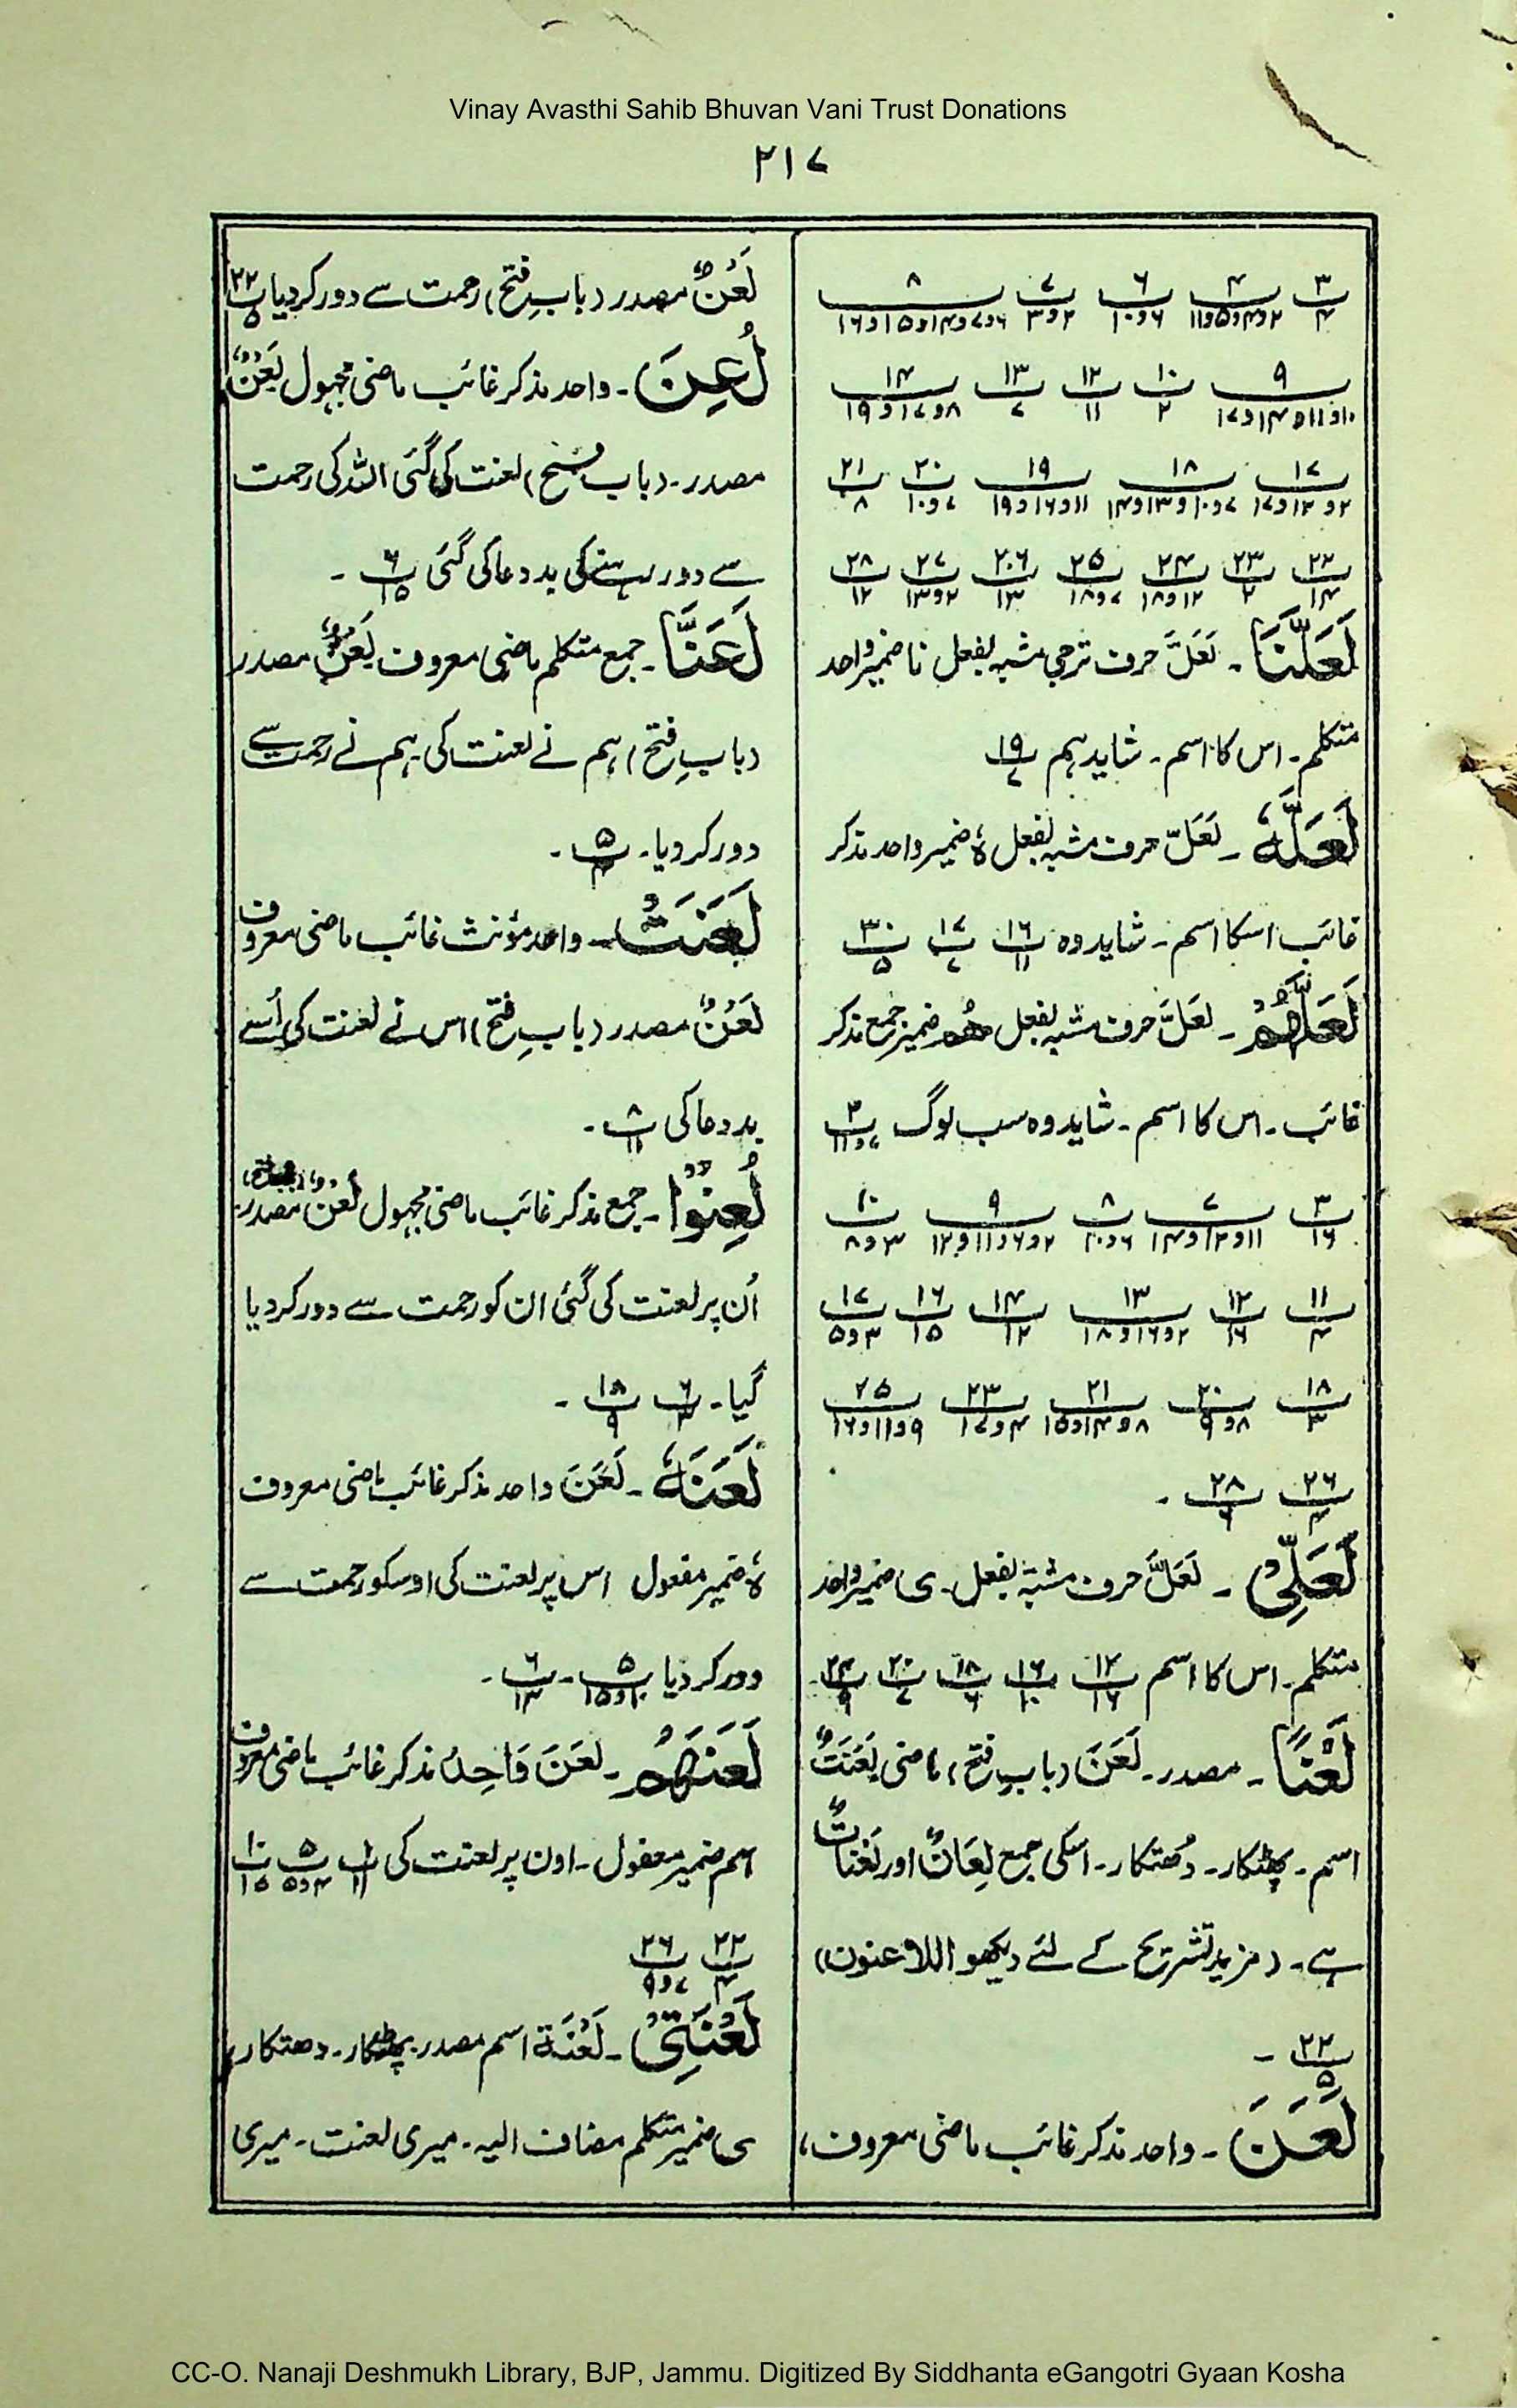 Vinay Avasthi Sahib Bhuvan Vani Trust Donations
۲۱۷
۳/۴ ۴/۲و۴و۵و۱۱ ۶/۶و۱۰ ۷/۲و۳ ۸/۶و۷و۱۴و۱۵و۱۶
۹/۱۰و۱۱و۱۴و۱۷ ۱۰/۲ ۱۲/۱۱ ۱۳/۷ ۱۴/۸و۱۷و۱۹
۱۷/۲و۱۲و۱۷ ۱۸/۷و۱۰و۱۳و۱۴ ۱۹/۱۱و۱۶و۱۹ ۲۰/۷و۱۰ ۲۱/۸
۲۲/۱۴ ۲۳/۲ ۲۴/۱۲و۱۸ ۲۵/۷و۱۸ ۲۶/۱۳ ۲۷/۲و۱۳ ۲۸/۱۲
لَعَلَّنَا ۔ لَعَلَّ حرف ترجی مشبہ بفعل نا ضمیر واحد
متکلم۔ اس کا اسم ۔ شاید ہم ۱۹/۷
لَعَلَّہٗ ۔ لَعَلَّ حرف مشبہ بفعل ہٗ ضمیر واحد مذکر
غائب اسکا اسم ۔ شاید وہ ۱۶/۱۱ ۱۷/۷ ۳۰/۵
لَعَلَّھُمْ ۔ لَعَلَّ حرف مشبہ بفعل ھُم ضمیر جمع مذکر
غائب ۔ اس کا اسم ۔ شاید وہ سب لوگ ۲/۷و۱۱
۳/۱۶ ۷/۱۱و۱۲و۱۴ ۸/۶و۱۰ ۹/۲و۶و۱۱و۱۲ ۱۰/۳و۸
۱۱/۴ ۱۲/۱۶ ۱۳/۲و۱۶و۱۸ ۱۴/۱۲ ۱۶/۱۵ ۱۷/۳و۵
۱۸/۳ ۲۰/۸و۹ ۲۱/۸و۱۴و۱۵ ۲۳/۴و۱۷ ۲۵/۹و۱۱و۱۶
۲۶/۴ ۲۸/۶ ۔
لَعَلِّیْ ۔ لَعَلَّ حرف مشبہ بفعل ۔ ی ضمیر واحد
متکلم۔ اس کا اسم ۱۲/۱۶ ۱۶/۱۰ ۱۸/۶ ۲۰/۷ ۲۴/۹
لَعْنًا ۔ مصدر ۔ لَعَنَ (باب فتح) ماضی لَعْنَتٌ
اسم ۔ پھٹکار ۔ دُھتکار ۔ اسکی جمع لِعَانٌ اور لَعْنَاتٌ
ہے ۔ (مزید تشریح کے لئے دیکھو اللاعنون)
۲۲/۵ ۔
لَعَنَ ۔ واحد مذکر غائب ماضی معروف،
لَعْنٌ مصدر (بابِ فتح) رحمت سے دور کردیا ۲۲/۵
لُعِنَ ۔ واحد مذکر غائب ماضی مجہول لَعْنٌ
مصدر ۔ (باب فتح) لعنت کی گئی اللہ کی رحمت
سے دور رہنے کی بد دعا کی گئی ۶/۱۵ ۔
لَعَنَّا ۔ جمع متکلم ماضی معروف لَعْنٌ مصدر
(بابِ فتح) ہم نے لعنت کی ۔ ہم نے رحمت سے
دور کر دیا ۔ ۵/۴ ۔
لَعَنَتْ ۔ واحد مؤنث غائب ماضی معروف
لَعْنٌ مصدر (بابِ فتح) اس نے لعنت کی اُسنے
بد دعا کی ۸/۱۱ ۔
لُعِنُوْا ۔ جمع مذکر غائب ماضی مجہول لَعْنٌ مصدر
اُن پر لعنت کی گئی ان کو رحمت سے دور کر دیا
گیا ۔ ۶/۳ ۱۸/۹ ۔
لَعَنَہٗ ۔ لَعَنَ واحد مذکر غائب ماضی معروف
ہٗ ضمیر مفعول اس پر لعنت کی اوسکو رحمت سے
دور کر دیا ۵/۱۰و۱۵ ۔ ۶/۱۳ ۔
لَعَنَھُمْ ۔ لَعَنَ وَاحِدُ مذکر غائب ماضی معروف
ہم ضمیر مفعول ۔ اون پر لعنت کی ۱/۱۱ ۵/۴و۵ ۱۰/۱۵
۲۲/۴ ۲۶/۷و۹
لَعْنَتِیْ ۔ لَعْنَۃ اسم مصدر ۔ پھٹکار ۔ دھتکار،
ی ضمیر متکلم مضاف الیہ ۔ میری لعنت ۔ میری
CC-O. Nanaji Deshmukh Library, BJP, Jammu. Digitized By Siddhanta eGangotri Gyaan Kosha